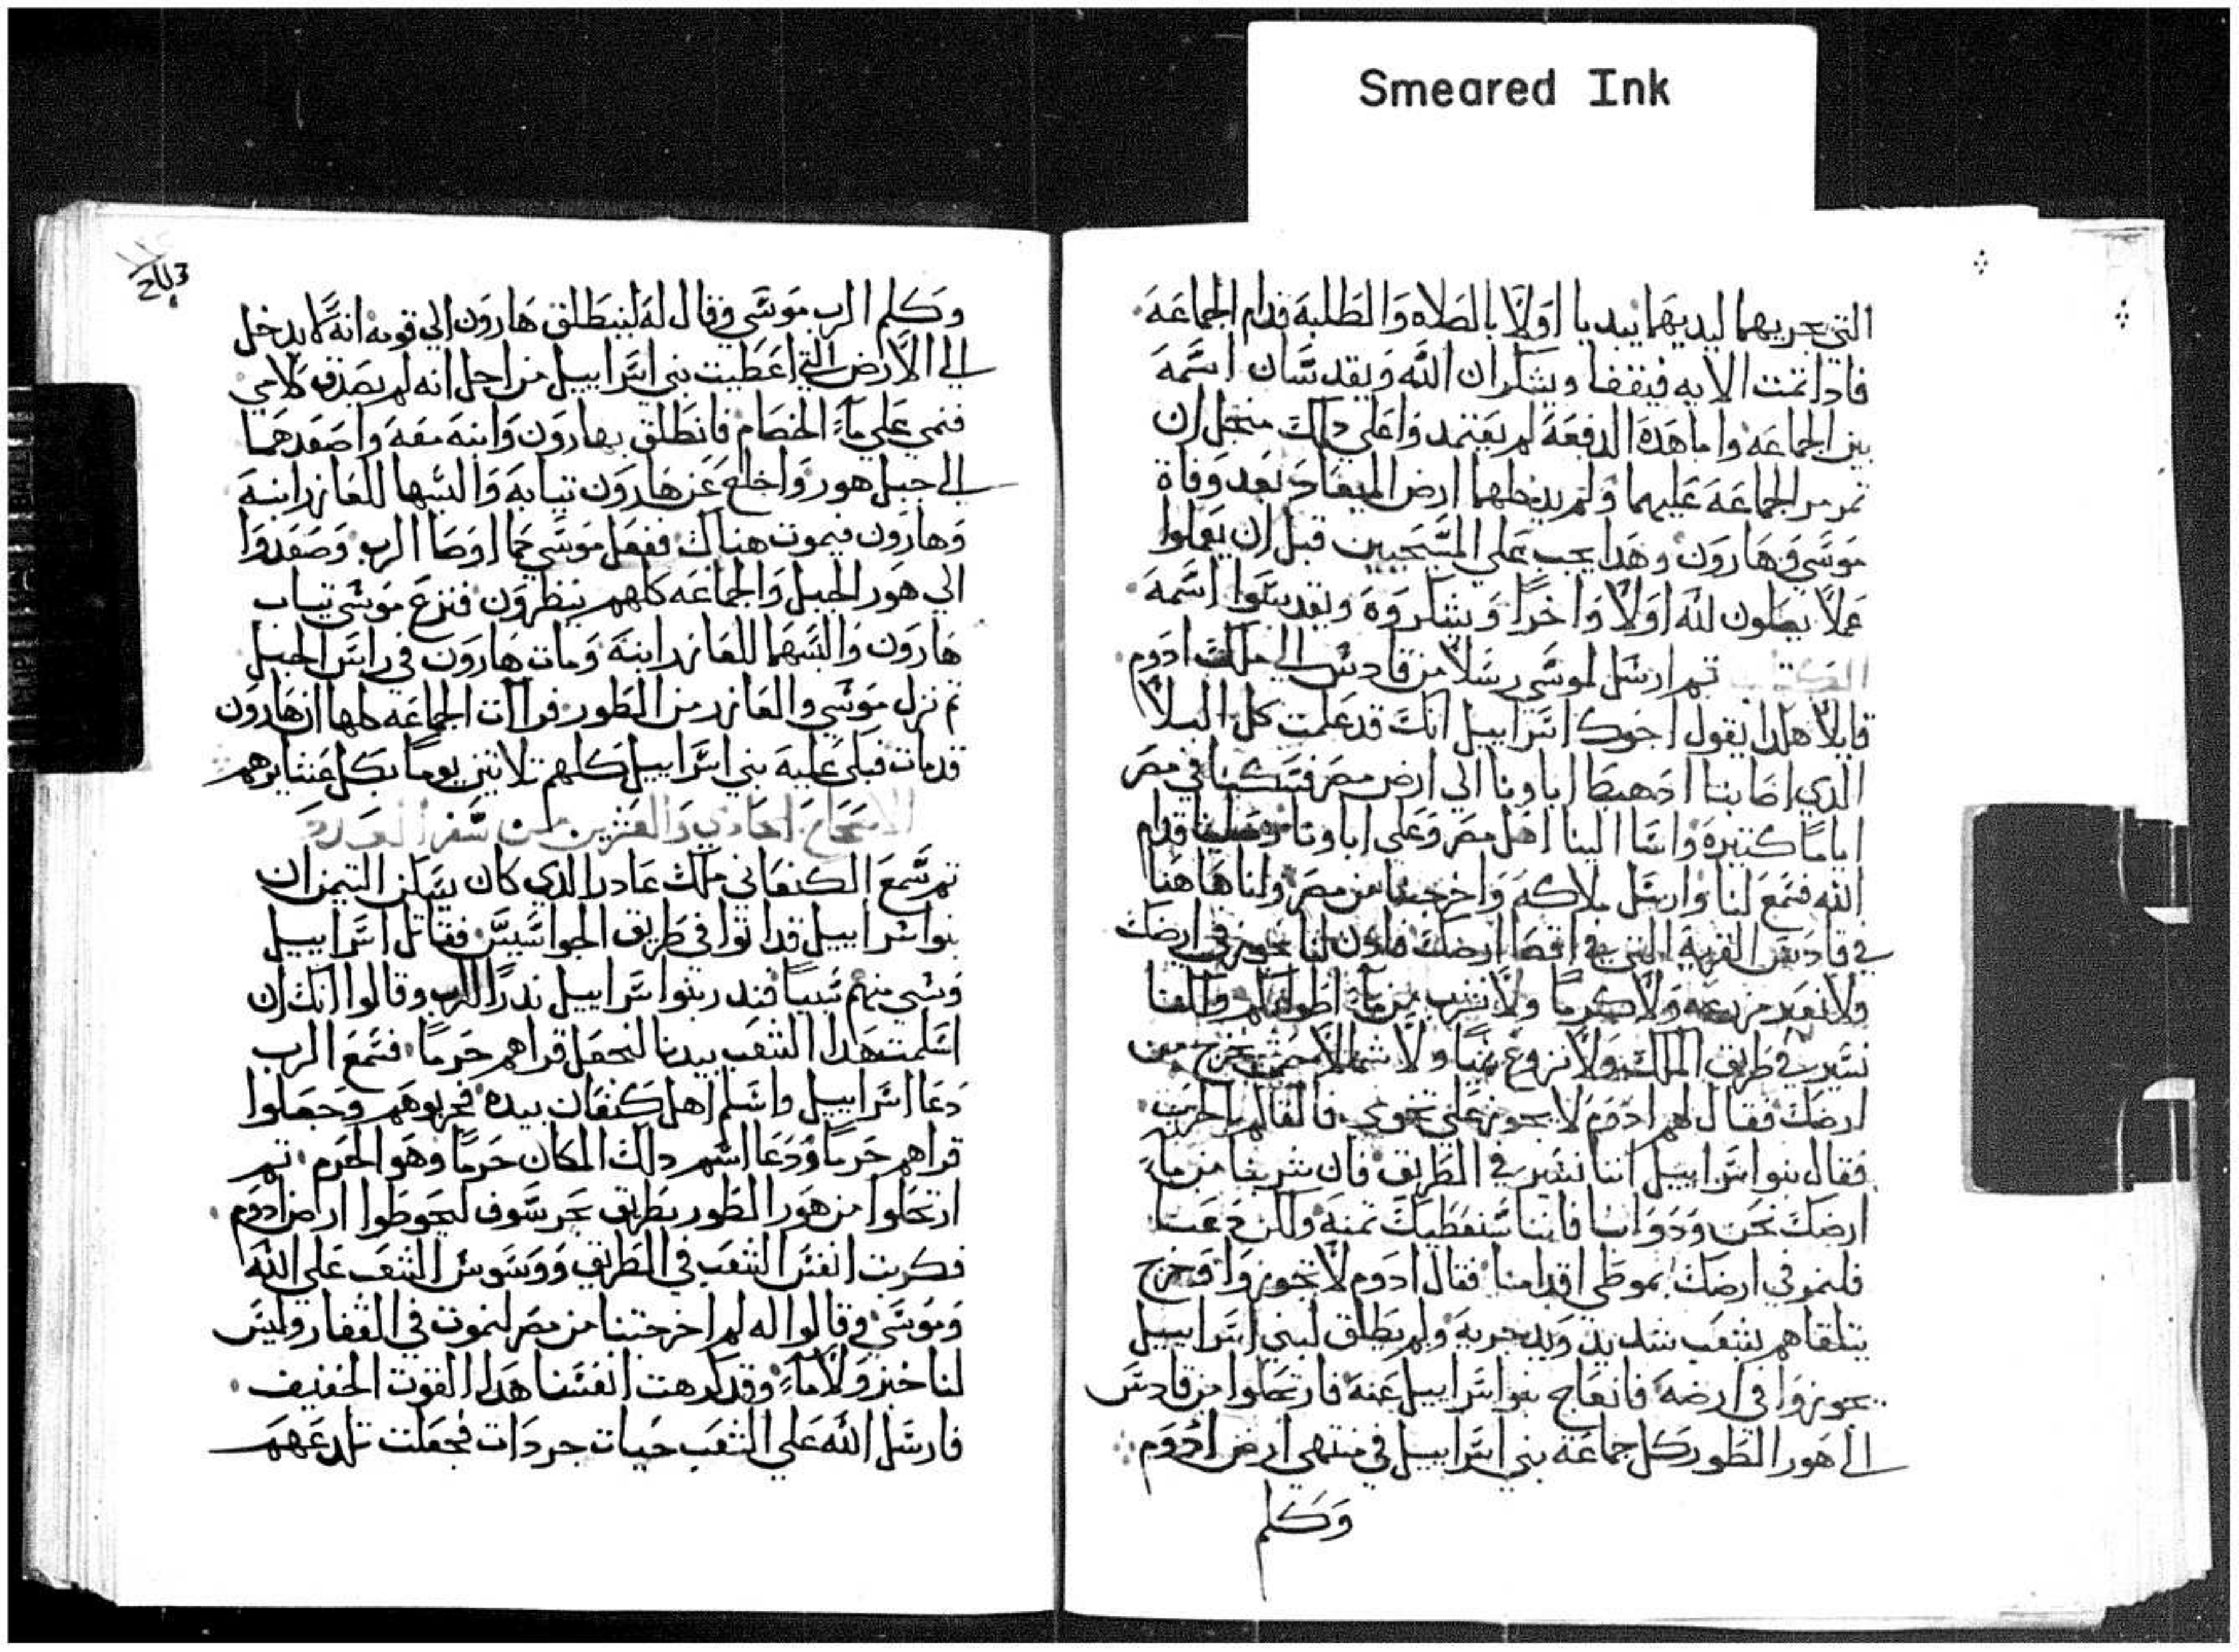 Smeared Ink
التي يجريهما ليديهما يبديا اولًا بالصلاه والطلبة قدام الجماعة
فاذا تمت الايه فيقفا ويشكران الله ويقدسان اسمه
بين الجماعه واما هذه الدفعة لم يعتمدوا علي ذلك منجل ان
تمرمر الجماعة عليهما ولم يدخلهما ارض الميعاد بعد وفاة
موسي وهارون وهدا يجب علي المسيحيين قبل ان يعملوا
عملاً يصلون لله اولًا واخرًا ويشكروه ويقدسوا اسمه
ثم ارسل موسي رسلًا من قادس الي ملك ادوم
قايلًا هكدا يقول اخوك اسراييل انك قد علمت كل البلا
الدي اصابنا اد هبط اباونا الي ارض مصر فسكنا في مصر
اياما كتيرة واسا الينا اهل مصر وعلي اباونا وصلينا قدام
الله فسمع لنا وارسل ملاكه واخرجنا من مصر ولنا هاهنا
في قادس القرية التي في اقصا ارضك فادن لنا نجوز في ارضك
ولا نعبر مزرعه ولا كرمًا ولا نشرب من ما
نسير في طريق الملك ولا نزوغ يمينًا ولا شمالًا حتي نخرج من
ارضك فقال لهم ادوم لا يجوز علي تخومي فالقاكم بالحرب
فقال بنوا اسراييل اننا نسير في الطريق فان شربنا من ماء
ارضك نحن ودوابنا فاننا سنعطيك تمنه
فلنمر في ارضك بموطي اقدامنا فقال ادوم لا تجوزوا وخرج
يتلقاهم بشعب شديد وبيد حربية ولم يطلق لبني اسراييل
يجوزوا في ارضه فانعاج بنوا اسراييل عنه فارتحلوا من قادس
الي هور الطور كل جماعة بني اسراييل في منتهي ارض ادوم
وكلم
203
وكلم الرب موسي وقال له لينطلق هارون الي قومه انه لا يدخل
الي الارض التي اعطيت بني اسراييل من اجل انه لم يصدق كلامي
فمي علي ماء الخصام فانطلق بهارون وابنه معه واصعدهما
الي جبل هور واخلع عن هارون تيابه والبسها للعازر ابنه
وهارون فيموت هناك ففعل موسي كما اوصا الرب وصعدوا
الي هور الجبل والجماعه كلهم ينظرون فنزع موسي تياب
هارون والبسهما للعازر ابنه ومات هارون في راس الجبل
تم نزل موسي والعازر من الطور فرات الجماعه كلها ان هارون
قد مات فبكي عليه بني اسراييل كلهم تلاتين يوما بكل عشايرهم
الاصحاح الحادي والعشرين من سفر العدد
تم سمع الكنعاني ملك عادر الدي كان يسكن التيمن ان
بنوا سراييل قد اتوا في طريق الجواسيس فقاتل اسراييل
وسبي منهم سبيا فندر بنوا سراييل ندرًا للرب وقالوا انك ان
اسلمت هدا الشعب بيدنا لنجعل قراهم حرمًا فسمع الرب
دعا اسراييل واسلم اهل كنعان بيده فخربوهم وجعلوا
قراهم حرما ودعا اسم دلك المكان حرمًا وهو الحرم تم
ارتحلوا من هور الطور بطريق بحر سوف ليحوطوا ارض ادوم
فكربت انفس الشعب في الطريق ووسوس الشعب علي الله
وموسي وقالوا له لم اخرجتنا من مصر لنموت في القفار وليس
لنا خبز ولا ماء وقد كرهت انفسنا هدا القوت الخفيف
فارسل الله علي الشعب حيات جردات فجعلت تلدغهم